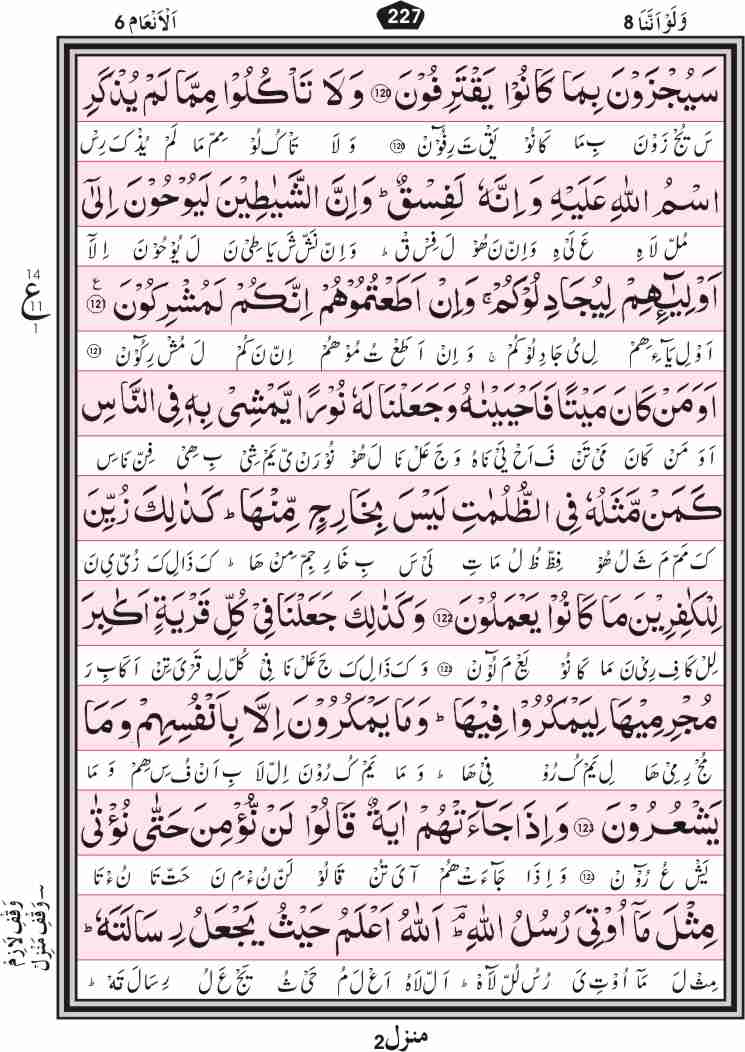 وَلَوْ اَنَّنَا 8
227
اَلْاَنْعَام 6
سَيُجْزَوْنَ بِمَا كَانُوْا يَقْتَرِفُوْنَ ﴿120﴾ وَلَا تَاْكُلُوْا مِمَّا لَمْ يُذْكَرِ
سَ يُجْ زَوْنَ بِمَا كَانُوْ يَقْ تَ رِفُوْٓنْ ﴿120﴾ وَ لَا تَاْكُ لُوْ مِمْ مَا لَمْ يُذْ كَ رِسْ
اسْمُ اللهِ عَلَيْهِ وَاِنَّهٗ لَفِسْقٌ ؕ وَاِنَّ الشَّيٰطِيْنَ لَيُوْحُوْنَ اِلٰٓى
مُلْ لَاهِ عَ لَىْ هِ وَاِنْ نَ هُوْ لَ فِسْ قْ ؕ وَ اِنْ نَشْ شَ يَا طِىْ نَ لَ يُوْحُوْنَ اِلَآ
اَوْلِيٰٓـِٕهِمْ لِيُجَادِلُوْكُمْ ۚ وَاِنْ اَطَعْتُمُوْهُمْ اِنَّكُمْ لَمُشْرِكُوْنَ ﴿121﴾ ع
اَوْ لِ يَآءِ هِمْ لِ ىُ جَا دِ لُوْ كُمْ ۚ وَ اِنْ اَ طَعْ تُ مُوْ هُمْ اِنْ نَ كُمْ لَ مُشْ رِكُوْٓنْ ﴿121﴾
14
ع
11
1
اَوَمَنْ كَانَ مَيْتًا فَاَحْيَيْنٰهُ وَجَعَلْنَا لَهٗ نُوْرًا يَّمْشِىْ بِهٖ فِى النَّاسِ
اَ وَ مَنْ كَانَ مَىْ تَنْ فَ اَحْ يَىْ نَاهُ وَ جَ عَلْ نَا لَ هُوْ نُوْ رَنْ ىّ يَمْ شِىْ بِ هِىْ فِنْ نَاسِ
كَمَنْ مَّثَلُهٗ فِى الظُّلُمٰتِ لَيْسَ بِخَارِجٍ مِّنْهَا ؕ كَذٰلِكَ زُيِّنَ
كَ مَمْ مَ ثَ لُ هُوْ فِظْ ظُ لُ مَا تِ لَىْ سَ بِ خَا رِ جِمْ مِنْ هَا ؕ كَ ذَالِ كَ زُىْ ىِ نَ
لِلْكٰفِرِيْنَ مَا كَانُوْا يَعْمَلُوْنَ ﴿122﴾ وَكَذٰلِكَ جَعَلْنَا فِىْ كُلِّ قَرْيَةٍ اَكٰبِرَ
لِلْ كَا فِ رِىْ نَ مَا كَانُوْ يَعْ مَ لُوْٓنْ ﴿122﴾ وَ كَ ذَالِ كَ جَ عَلْ نَا فِىْ كُلْ لِ قَرْ ىَ تِنْ اَ كَا بِ رَ
مُجْرِمِيْهَا لِيَمْكُرُوْا فِيْهَا ؕ وَمَا يَمْكُرُوْنَ اِلَّا بِاَنْفُسِهِمْ وَمَا
مُجْ رِ مِىْ هَا لِ يَمْ كُ رُوْ فِىْ هَا ؕ وَ مَا يَمْ كُ رُوْنَ اِلْ لَا بِ اَنْ فُ سِ هِمْ وَ مَا
يَشْعُرُوْنَ ﴿123﴾ وَاِذَا جَآءَتْهُمْ اٰيَةٌ قَالُوْا لَنْ نُّؤْمِنَ حَتّٰى نُؤْتٰى
يَشْ عُ رُوْٓنْ ﴿123﴾ وَ اِذَا جَآءَتْ هُمْ آىَ تُنْ قَا لُوْ لَنْ نُ ءْمِ نَ حَتْ تَا نُ ءْ تَا
مِثْلَ مَآ اُوْتِىَ رُسُلُ اللهِ ؔؕ اَللهُ اَعْلَمُ حَيْثُ يَجْعَلُ رِسَالَتَهٗ ؕ
مِثْ لَ مَآ اُوْتِ ىَ رُسُ لُلْ لَآهْ ؕ اَلْ لَاهُ اَعْ لَ مُ حَىْ ثُ يَجْ عَ لُ رِسَالَ تَهْ ؕ
وَقْفِ مَنْزِلْ
وَقْفِ لَازِمْ
منزل2